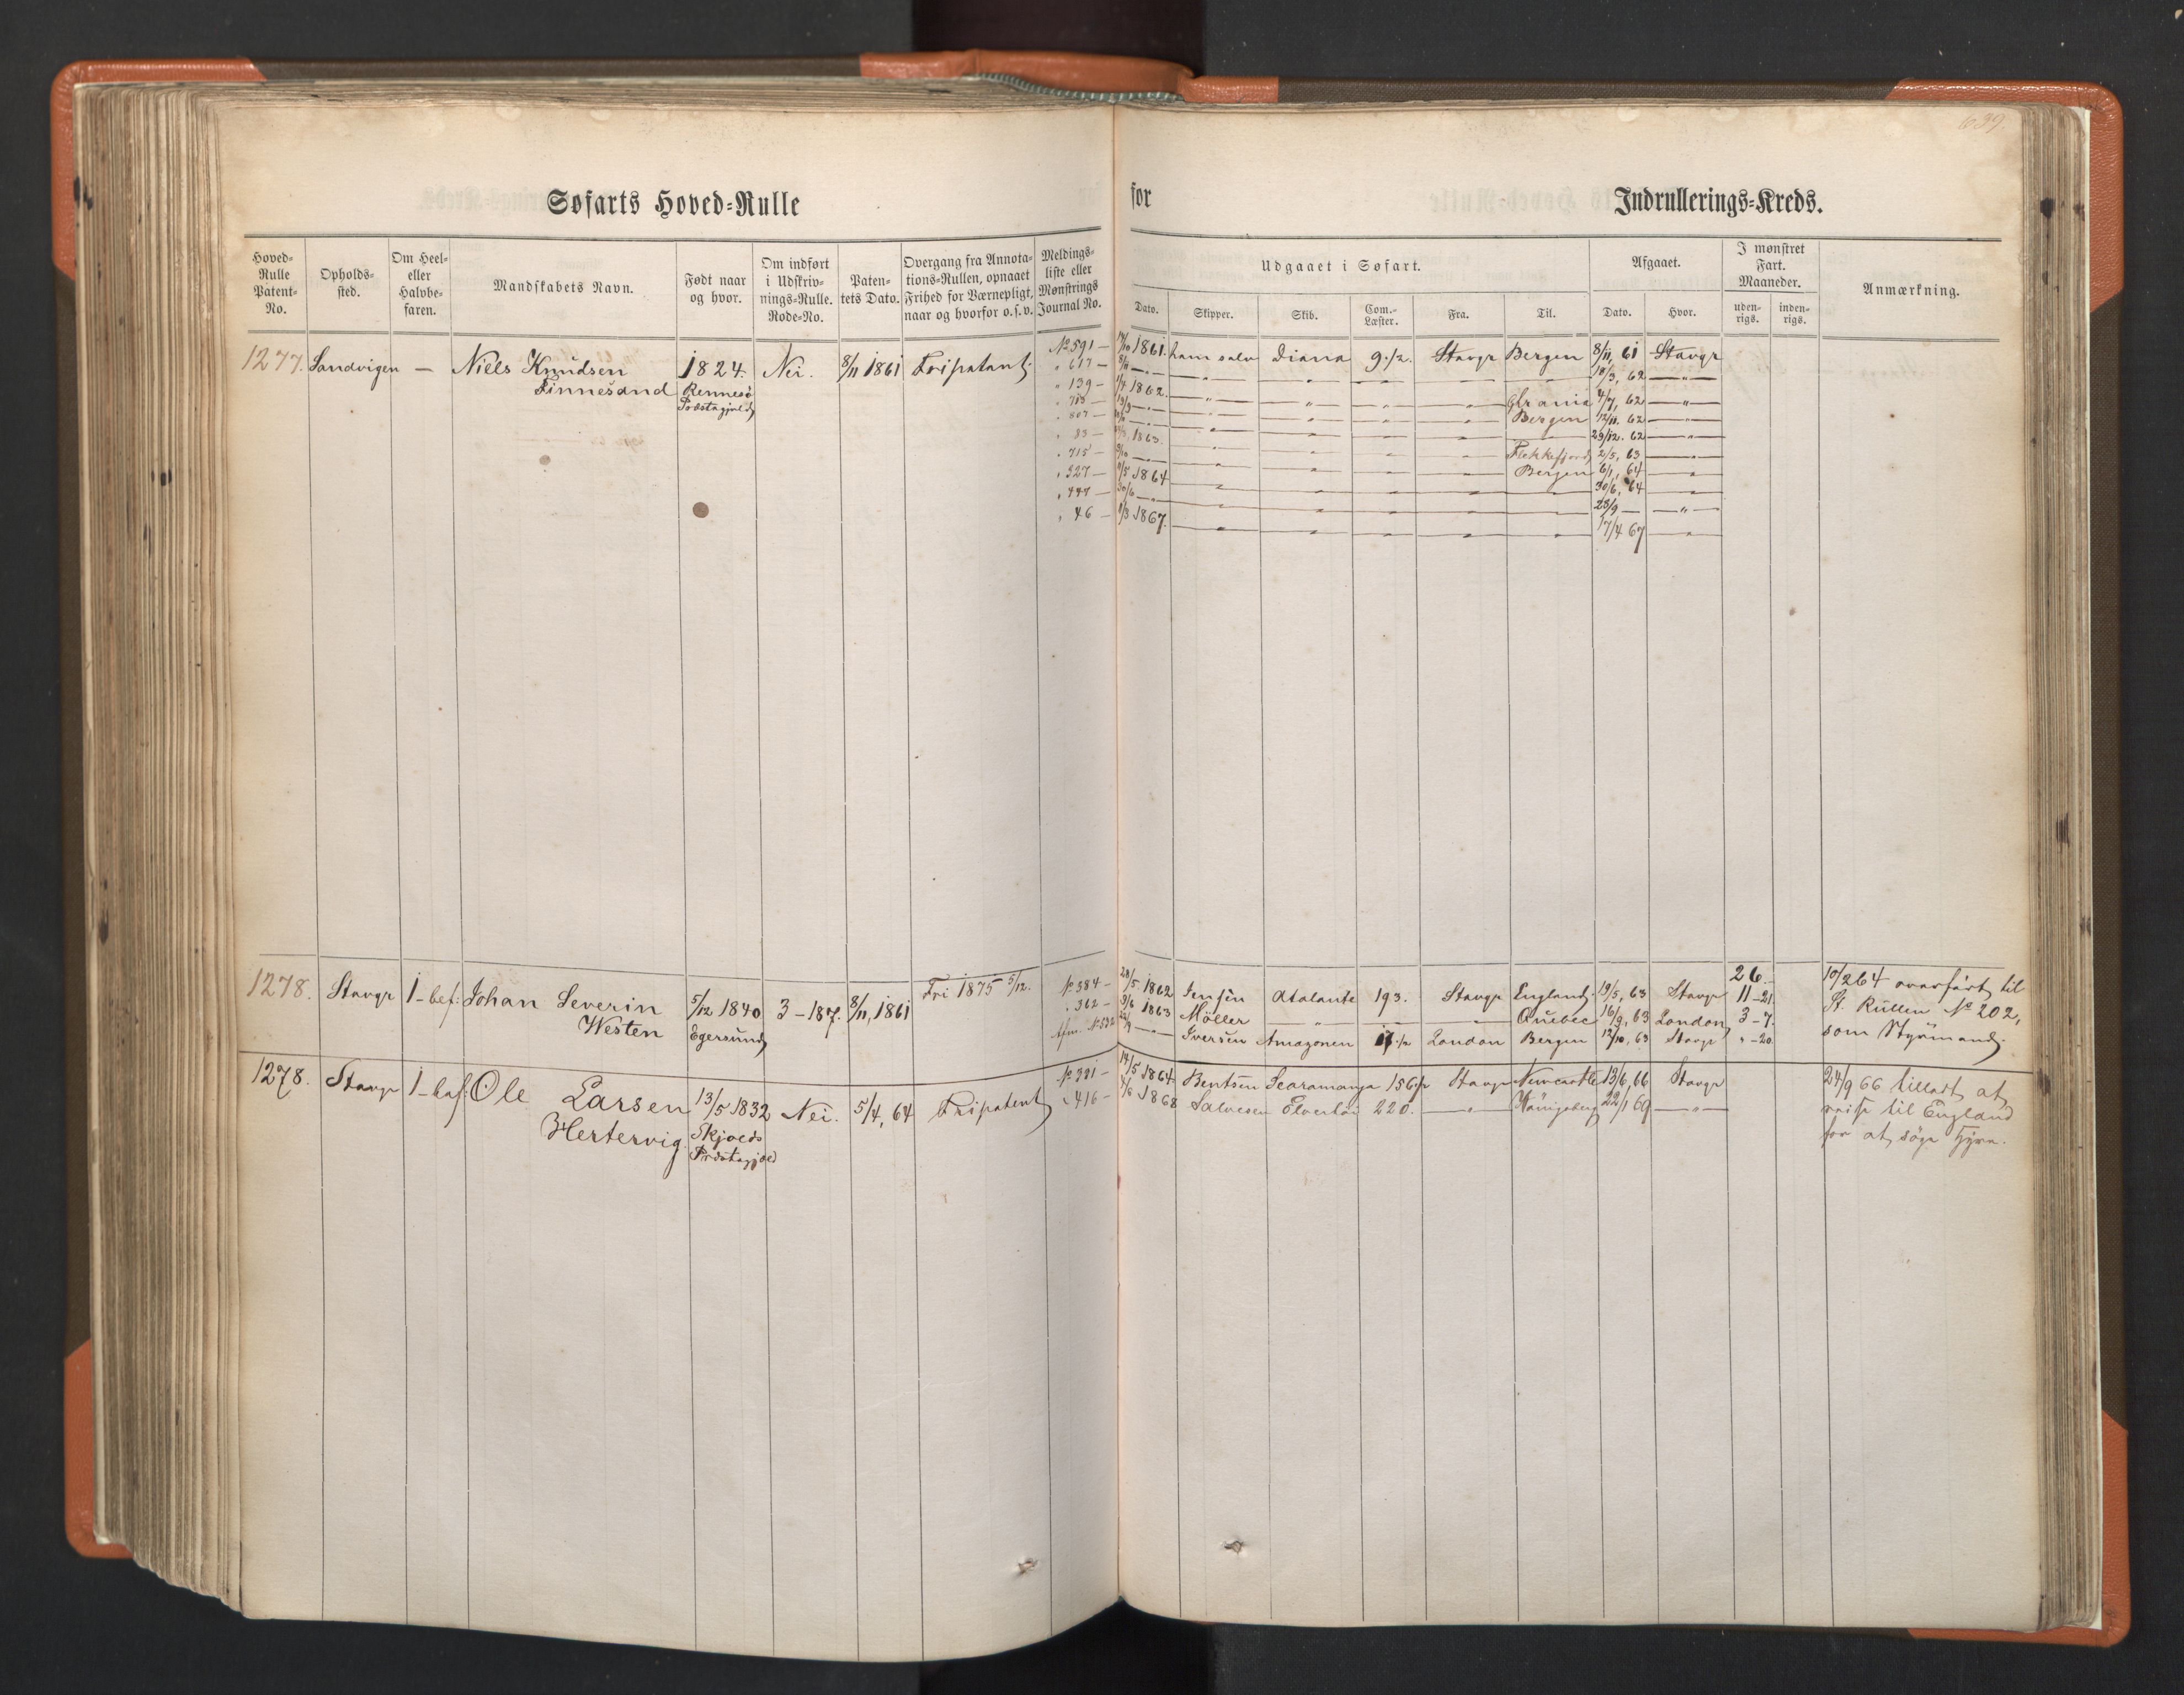 639.
Søfarts Hoved-Rulle for Indrullerings-Kreds.
Hoved-Rulle Patent-No.
Opholds-sted.
Om Heel- eller Halvbe-faren.
Mandskabets Navn.
Født naar og hvor.
Om indført i Udskriv-nings-Rulle. Rode-No.
Paten-tets Dato.
Overgang fra Annota-tions-Rullen, opnaaet Frihed for Værnepligt, naar og hvorfor o. s. v.
Meldings-liste eller Mønstrings Journal No.
Udgaaet i Søfart.
Dato. Skipper. Skib. Com.-Læster. Fra. Til.
Afgaaet.
Dato. Hvor.
I mønstret Fart. Maaneder.
uden-rigs. inden-rigs.
Anmærkning.
1277. Sandvigen — Niels Knudsen 1824. Nei. 8/11 1861 Fripatent. No 591 — 1861. ham selv Diana 9 1/2. Stavgr Bergen 8/11, 61 Stavgr
Finnesand Rennesö
Præstegjæld
" 617 — 8/11 — " — " — " — " — 18/3, 62 — " —
" 139 — 1/4 1862. — " — " — " — " — 4/7, 62 — " —
— " — " — " — " Bergen 12/11. 62 — " —
" 807 — " — " — " — " — 29/12. 62 — " —
" 83 — 1863. — " — " — " — " Flekkefjord 2/5, 63 — " —
" 715 — — " — " — " — " Bergen 6/1, 64 — " —
" 327 — 1/5 1864 — " — " — " — " — " 30/6, 64 — " —
" 447 — 30/6 — " — " — " — " — " — " 28/9 — — " —
" 46 — 1/3 1867. — " — " — " — " — " 17/4 67 — " —
1278. Stavgr 1-bef: Johan Severin 5/12 1840 3 - 187. 8/11, 1861 Fri 1875 5/12. No 384 — 28/5 1862 Jensen Atalante 193. Stavgr England. 19/5, 63 Stavgr 26. 11-21. 10/2 64 overført til
Westen Egersund " 362 — 3/6 1863 Möller — " — — — Quebec 16/9, 63 London 3-7. St. Rullen No 202,
Iversen Amazonen London Bergen 12/10, 63 Stavgr " -20. som Styrmand.
1278. Stavgr 1-bef: Ole Larsen 13/5 1832 Nei. 5/4, 64 Fripatent No 391 — 14/5 1864 Bentsen Scaramanga Stavgr Newcastle 13/6, 66 Stavgr 24/9 66 tilladt at
Hertervig Skjolds Præstegjæld " 416 — 4/6 1868 Salvesen 220. — " — Königsberg 22/1 69 — " — reise til England
for at søge Hyre.